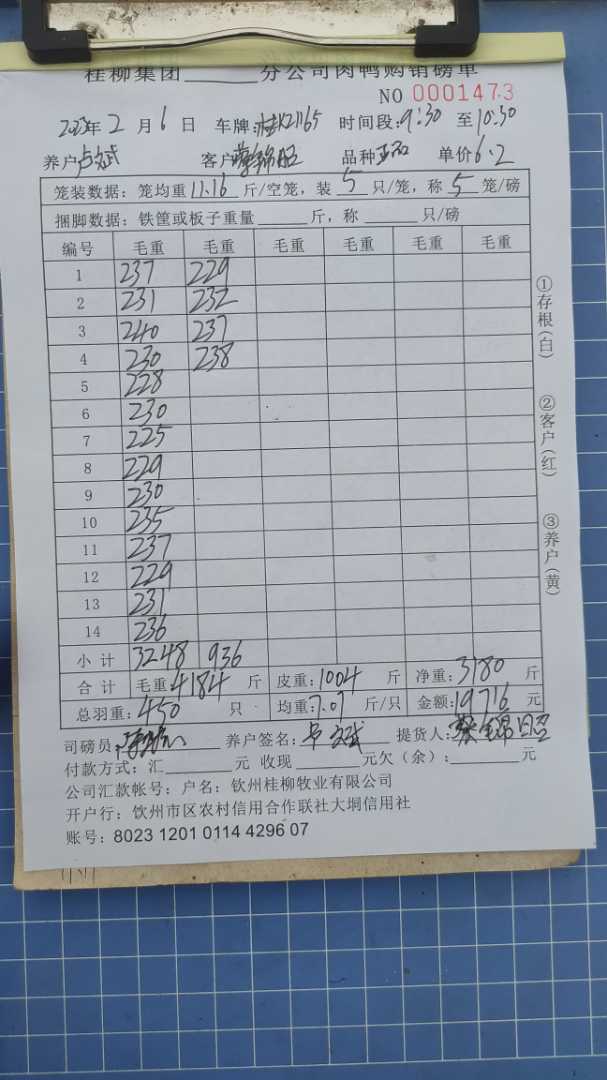 桂柳集团______分公司肉鸭购销磅单
NO 0001473
2023年2月6日 车牌:桂K21165 时间段:9:30至10:30
养户卢文斌 客户 品种 单价6.2
笼装数据:笼均重11.16斤/空笼,装5只/笼,称5笼/磅
捆脚数据:铁筐或板子重量______斤,称______只/磅
编号 毛重 毛重 毛重 毛重 毛重 毛重
1 237 229
2 231 232
3 240 237
4 230 238
5 228
6 230
7 225
8 229
9 230
10 235
11 237
12 229
13 231
14 236
小计 3248 936
合计 毛重4184斤 皮重:1004斤 净重:3180斤
总羽重:450只 均重:7.07斤/只 金额:19716元
司磅员: 养户签名:卢文斌 提货人:蔡锦昭
付款方式:汇______元 收现______元欠(余):______元
公司汇款帐号:户名:钦州桂柳牧业有限公司
开户行:钦州市区农村信用合作联社大垌信用社
账号:8023 1201 0114 4296 07
①存根(白)
②客户(红)
③养户(黄)